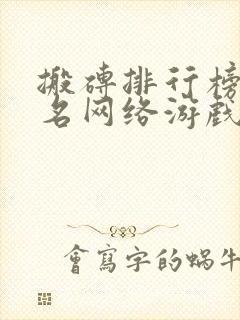 搬磚排行榜
名网络游戏
會寫字的蝸牛